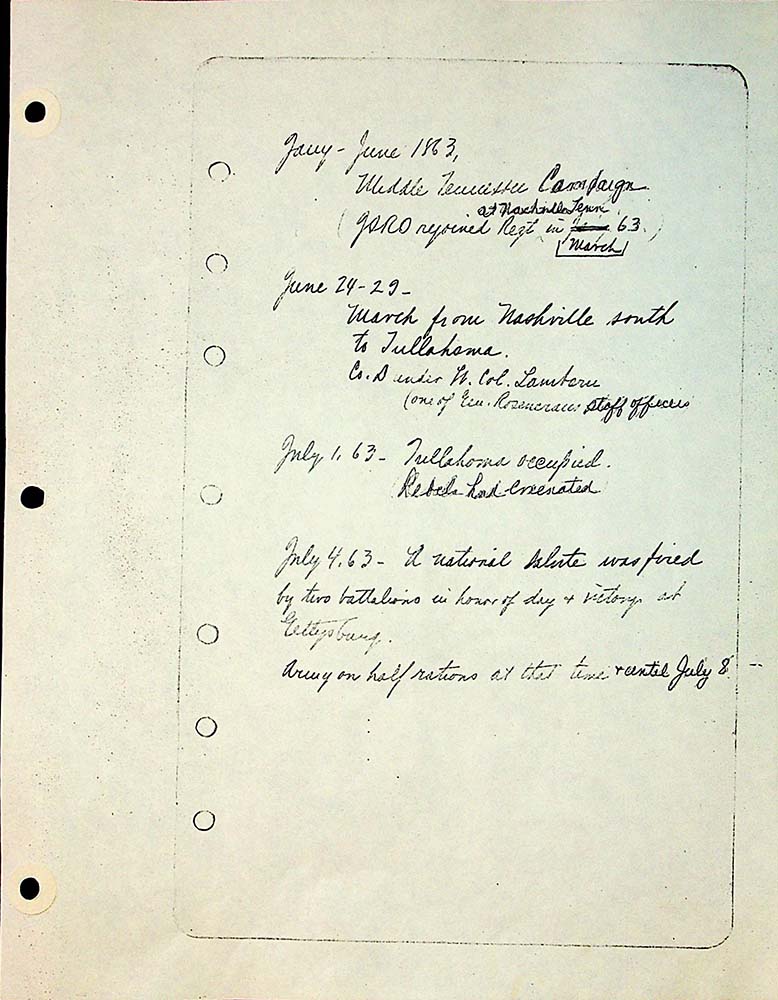 Jany - June 1863,
Middle Tennessee Campaign
at Nashville Tenn
(JSRO rejoined Regt in 63.)
March
June 24-29-
March from Nashville south
to Tullahoma.
Co. D under Lt. Col. Lamborn
(one of Gen. Rosencrans staff officers
July 1, 63 - Tullahoma occupied.
Rebels had evacuated
July 4, 63 - A national salute was fired
by two battalions in honor of day + victory at
Gettysburg.
Army on half rations at that time + until July 8.